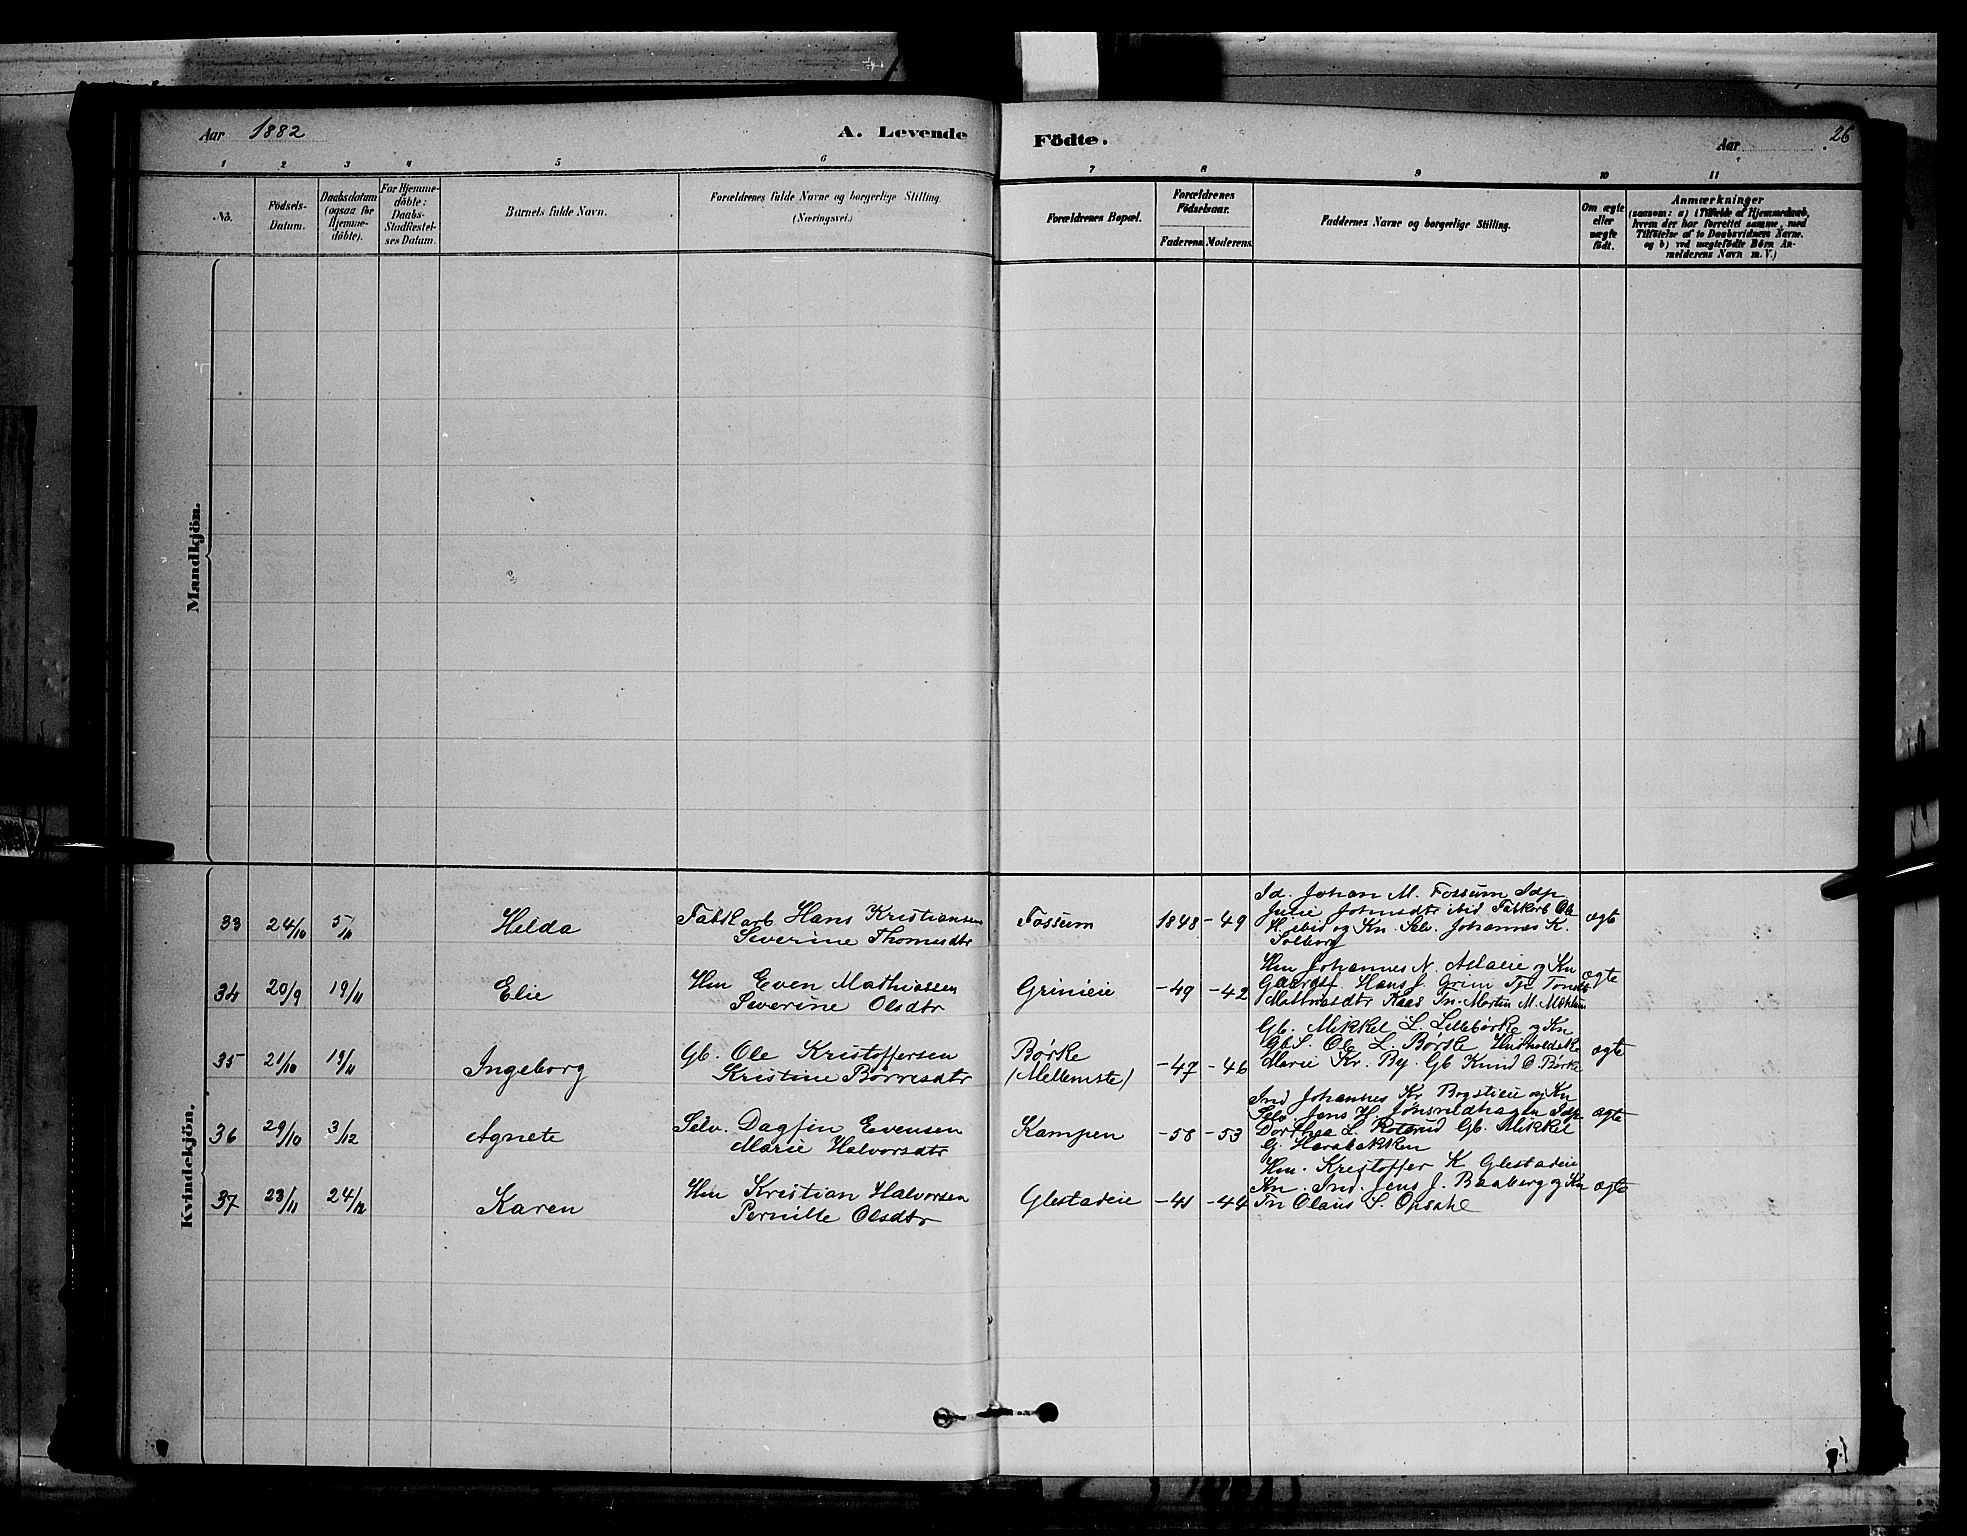 Aar 1882
A. Levende
Födte.
Aar
26
1 2 3 4 5 6 7 8 9 10 11
No.
Födsels-
Datum.
Daabsdatum
(ogsaa for
Hjemme-
döbte).
For Hjemme-
döbte:
Daabs-
Stadfæstel-
ses Datum.
Barnets fulde Navn.
Forældrenes fulde Navne og borgerlige Stilling
(Næringsvei.)
Forældrenes Bopæl.
Forældrenes
Födselsaar.
Faderens. Moderens.
Faddernes Navne og borgerlige Stilling.
Om ægte
eller
uægte
födt.
Anmærkninger
(saasom: a) i Tilfælde af Hjemmedaab,
hvem der har forrettet samme, med
Tilföielse af to Daabsvidners Navne.
og b) ved uægtefödte Börn An-
melderens Navn m. V.)
Mandkjön.
Kvindekjön.
33 24/10 5/11 Helda
Fabkarb Hans Kristiansen
Severine Thomesdtr
Fossum 1848 -49
Id. Johan M. Fossum Idp
Julie Johnsdtr ibid Fabkarb Ole
H. ibid og Kn. Selv. Johannes K.
Solberg
ægte
34 20/9 19/11 Elie
Hm Even Mathiassen
Severine Olsdtr
Grinieie -49 -42
Hm Johannes N. og Kn
Gaardsf. Hans J. Grim Tp.
Kaas Tn. Martin M. Mæhlum
ægte
35 21/10 19/11 Ingeborg
Gb. Ole Kristoffersen
Kristine Børresdtr
Børke
(Mellemste)
-47 -46
Gb. Mikkel L. Lillebørke og Kn
GbS. Ole L. Børke
Marie Kr. By. Gb Knud O. Børke
ægte
36 29/10 3/12 Agnete
Selv. Dagfin Evensen
Marie Halvorsdtr
Kampen -58 -53
Ind Johannes Kr Bogstieie og Kn
Selv. Jens H. Jønsveldhagen Idp
Dorthea L. Gb. Mikkel
G. Harabakken
ægte
37 23/11 24/12 Karen
Hm Kristian Halvorsen
Pernille Olsdtr
Glestadeie -41 -44
Hm. Kristoffer K Glestadeie
Kn. Ind. Jens J. Baaberg og Kn
Tn Olaus S. Opsahl
ægte